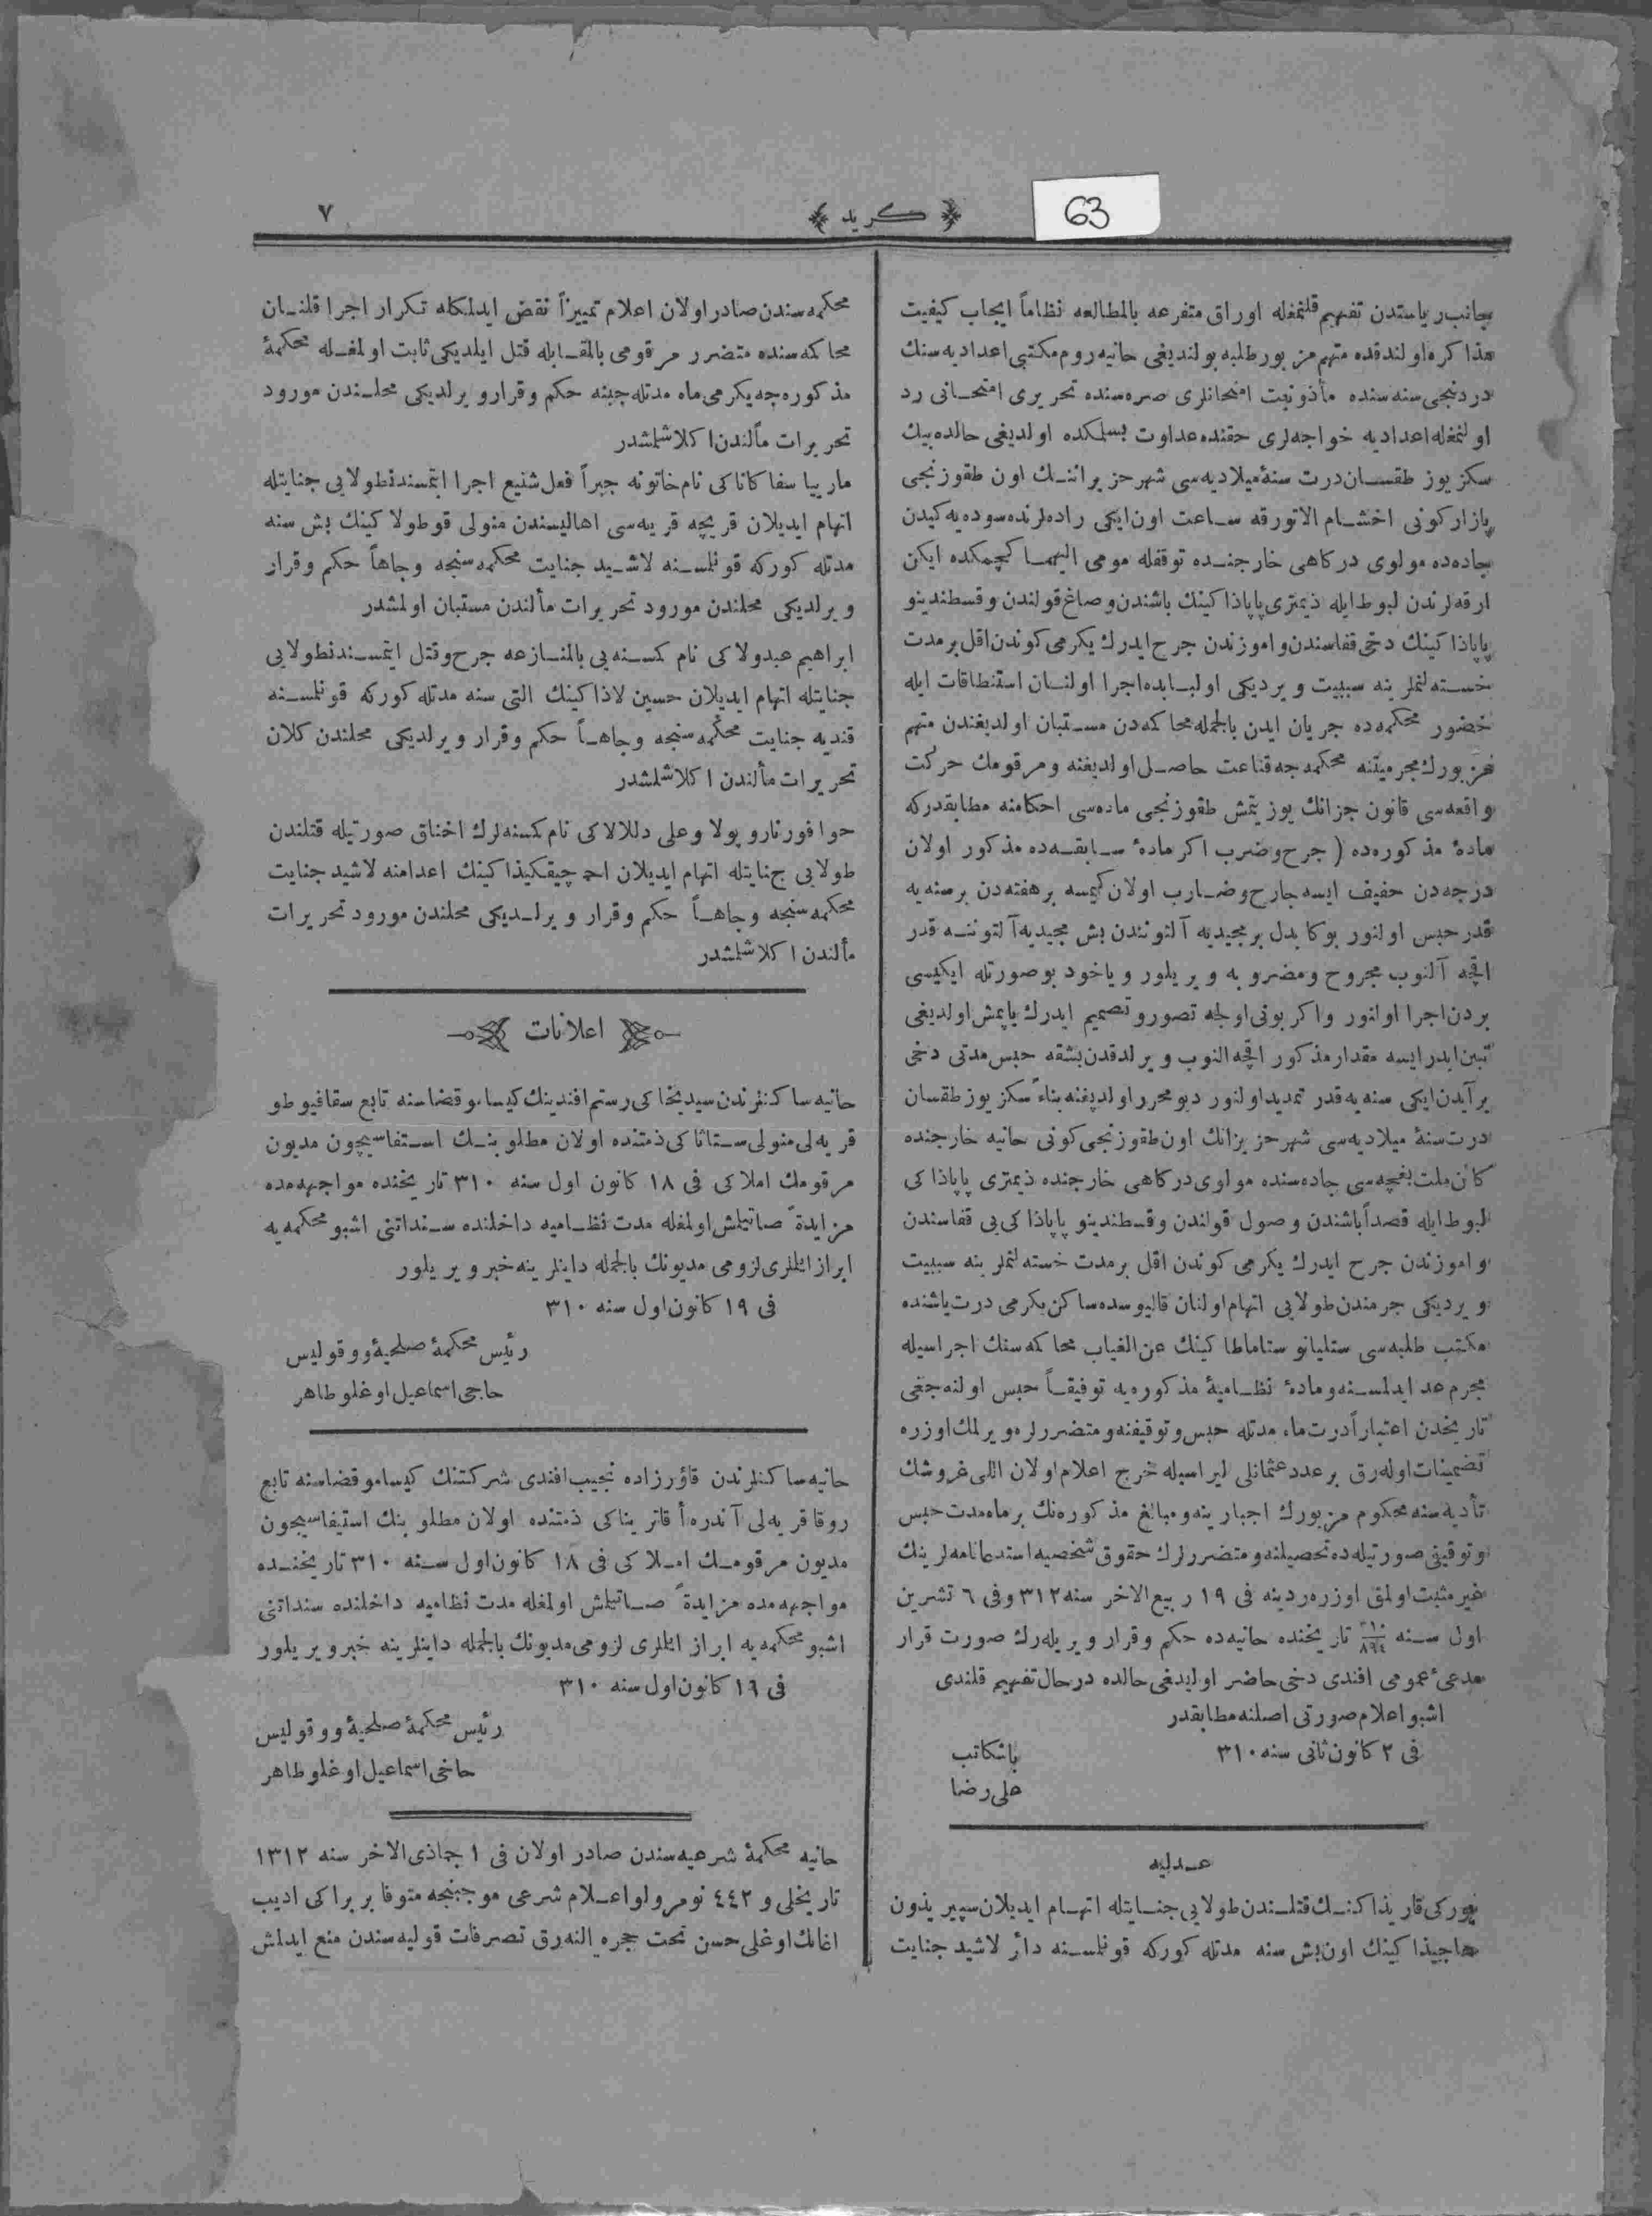 63
﴿ كريد ﴾
٧
جانب رياستدن تفهيم قلنمغله اوراق متفرعه بالمطالعه نظاماً ايجاب كيفيت
مذاكره اولندقده متهم مزبور طلبه بولنديغى حانيه روم مكتبى اعداديه سنك
دردنجى سنه سنده مأذونيت امتحانلرى صره سنده تحريرى امتحانى رد
اولنمغله اعداديه خواجه لرى حقنده عداوت بسلمكده اولديغى حالده بيك
سكز يوز طقسان درت سنهٔ ميلاديه سى شهر حزيراننك اون طقوزنجى
پازار كونى اخشام الاتورقه ساعت اون ايكى راده لرنده سوده يه كيدن
جاده ده مولوى دركاهى خارجنده توقفله مومى اليهما كچمكده ايكن
ارقه لرندن لبوط ايله ذيمترى پاپاذاكينك باشندن و صاغ قولندن و قسطندينو
پاپاذاكينك دخى قفاسندن و اموزندن جرح ايدرك يكرمى كوندن اقل بر مدت
خسته لنملرينه سببيت ويرديكى اولبابده اجرا اولنان استنطاقات ايله
حضور محكمه ده جريان ايدن بالجمله محاكمه دن مستبان اولديغندن متهم
مزبورك مجرميتنه محكمه جه قناعت حاصل اولديغنه و مرقومك حركت
واقعه سى قانون جزانك يوز يتمش طقوزنجى ماده سى احكامنه مطابقدركه
مادهٔ مذكوره ده ( جرح و ضرب اكر مادهٔ سابقه ده مذكور اولان
درجه دن خفيف ايسه جارح و ضارب اولان كيمسه بر هفته دن بر سنه يه
قدر حبس اولنور بوكا بدل بر مجيديه آلتونندن بش مجيديه آلتوننه قدر
اقچه آلنوب مجروح و مضروبه ويريلور و ياخود بو صورتله ايكيسى
بردن اجرا اولنور واكر بونى اولجه تصور و تصميم ايدرك ياپمش اولديغى
تبين ايدر ايسه مقدار مذكور اقچه النوب ويرلدقدن بشقه حبس مدتى دخى
بر آيدن ايكى سنه يه قدر تمديد اولنور ديو محرر اولديغنه بناءً سكز يوز طقسان
درت سنهٔ ميلاديه سى شهر حزيرانك اون طقوزنجى كونى حانيه خارجنده
كائن ملت بغچه سى جاده سنده مولوى دركاهى خارجنده ذيمترى پاپاذاكى
لبوط ايله قصداً باشندن و صول قولندن و قسطندينو پاپاذاكى يى قفاسندن
و اموزندن جرح ايدرك يكرمى كوندن اقل بر مدت خسته لنملرينه سببيت
ويرديكى جرمندن طولايى اتهام اولنان قاليوسده ساكن يكرمى درت ياشنده
مكتب طلبه سى ستليانو ستاماطاكينك عن الغياب محاكمه سنك اجراسيله
مجرم عد ايدلمسنه و مادهٔ نظاميهٔ مذكوره يه توفيقاً حبس اولنه جغى
تاريخدن اعتباراً درت ماه مدتله حبس و توقيفنه و متضررلره ويرلمك اوزره
تضمينات اوله رق بر عدد عثمانلى ليراسيله خرج اعلام اولان اللى غروشك
تأديه سنه محكوم مزبورك اجبارينه و مبالغ مذكوره نك بر ماه مدت حبس
و توقيفى صورتيله ده تحصيلنه و متضررلرك حقوق شخصيه استدعانامه لرينك
غير مثبت اولمق اوزره ردينه فى ١٩ ربيع الاخر سنه ٣١٢ وفى ٦ تشرين
اول سنه ٣١٠ ٨٩٤ تاريخنده حانيه ده حكم و قرار ويريله رك صورت قرار
مدعئ عمومى افندى دخى حاضر اولديغى حالده درحال تفهيم قلندى
اشبو اعلام صورتى اصلنه مطابقدر
فى ٢ كانون ثانى سنه ٣١٠
باشكاتب
على رضا
عدليه
يوركى قاريذاكنك قتلندن طولايى جنايتله اتهام ايديلان سپيريذون
حاجيذاكينك اون بش سنه مدتله كوركه قونلمسنه دائر لاشيد جنايت
محكمه سندن صادر اولان اعلام تمييزاً نقض ايدلمكله تكرار اجرا قلنان
محاكمه سنده متضرر مرقومى بالمقابله قتل ايلديكى ثابت اولمغله محكمهٔ
مذكوره جه يكرمى ماه مدتله حبسنه حكم و قرار ويرلديكى محلندن مورود
تحريرات مألندن اكلاشلمشدر
ماريا سفاكاناكى نام خاتونه جبراً فعل شنيع اجرا ايتمسندنطولايى جنايتله
اتهام ايديلان قريچه قريه سى اهاليسندن منولى قوطولاكينك بش سنه
مدتله كوركه قونلمسنه لاشيد جنايت محكمه سنجه وجاهاً حكم و قرار
ويرلديكى محلندن مورود تحريرات مألندن مستبان اولمشدر
ابراهيم عبدولاكى نام كمسنه يى بالمنازعه جرح و قتل ايتمسندنطولايى
جنايتله اتهام ايديلان حسين لاذاكينك التى سنه مدتله كوركه قونلمسنه
قنديه جنايت محكمه سنجه وجاهاً حكم و قرار ويرلديكى محلندن كلان
تحريرات مألندن اكلاشلمشدر
حوا فورنارو پولا و على دللالاكى نام كمسنه لرك اختناق صورتيله قتلندن
طولايى جنايتله اتهام ايديلان احمد چيقكيذاكينك اعدامنه لاشيد جنايت
محكمه سنجه وجاهاً حكم و قرار ويرلديكى محلندن مورود تحريرات
مألندن اكلاشلمشدر
اعلانات
حانيه ساكنلرندن سيد يحياكى رستم افندينك كيسامو قضاسنه تابع سقافيوطو
قريه لى منولى ستاثاكى ذمتنده اولان مطلوبنك استفاسيچون مديون
مرقومك املاكى فى ١٨ كانون اول سنه ٣١٠ تاريخنده مواجهه مده
مزايدةً صاتيلمش اولمغله مدت نظاميه داخلنده سنداتنى اشبو محكمه يه
ابراز ائتلرى لزومى مديونك بالجمله داينلرينه خبر ويريلور
فى ١٩ كانون اول سنه ٣١٠
رئيس محكمهٔ صلحيهٔ ووقوليس
حاجى اسماعيل اوغلو طاهر
حانيه ساكنلرندن قاؤرزاده نجيب افندى شركتنك كيسامو قضاسنه تابع
روقا قريه لى آندره أ قاتريناكى ذمتنده اولان مطلوبنك استيفاسيچون
مديون مرقومك املاكى فى ١٨ كانون اول سنه ٣١٠ تاريخنده
مواجهه مده مزايدةً صاتيلمش اولمغله مدت نظاميه داخلنده سنداتنى
اشبو محكمه يه ابراز ائتلرى لزومى مديونك بالجمله داينلرينه خبر ويريلور
فى ١٩ كانون اول سنه ٣١٠
رئيس محكمهٔ صلحيهٔ ووقوليس
حاجى اسماعيل اوغلو طاهر
حانيه محكمهٔ شرعيه سندن صادر اولان فى ١ جماذى الاخر سنه ١٣١٢
تاريخلى و ٤٤٢ نومرولو اعلام شرعى موجبنجه متوفا بربراكى اديب
اغانك اوغلى حسن تحت حجره النه رق تصرفات قوليه سندن منع ايدلمش